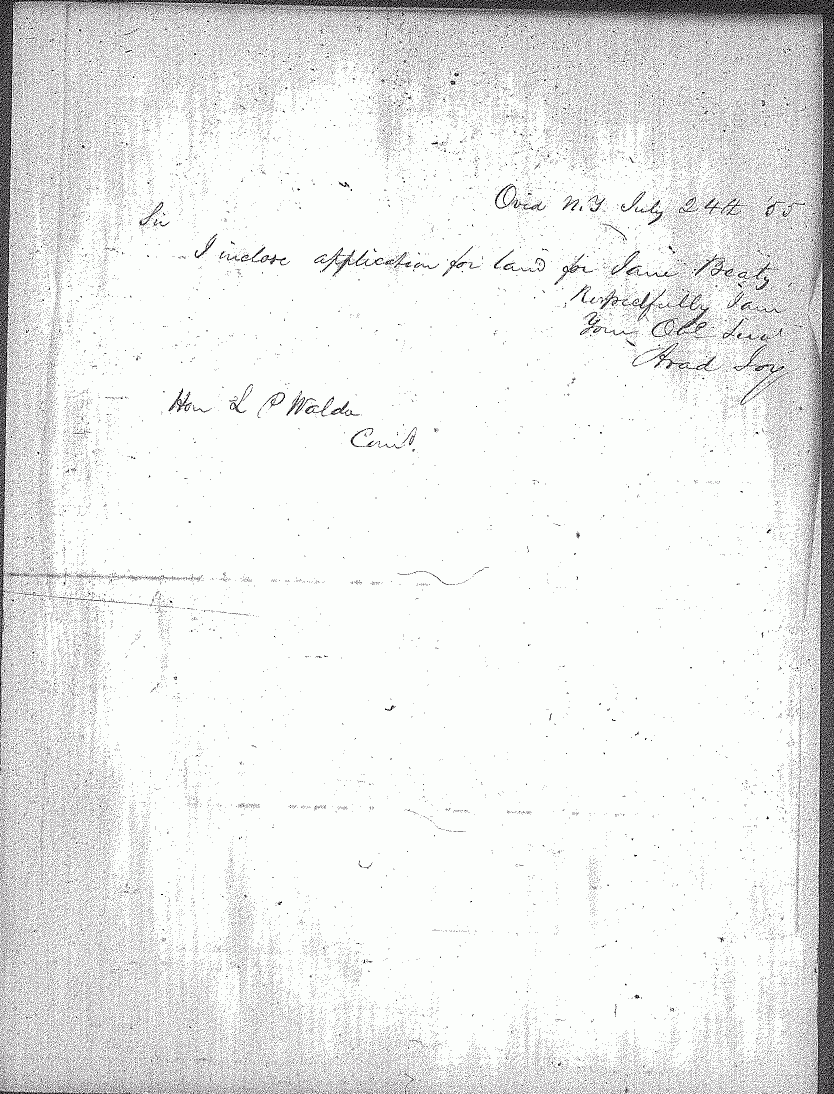 Ovid N.Y. July 24th 55
Sir
I inclose application for land for Jane Beaty.
Respectfully I am
Your Obt Servt
Arad Joy
Hon L P Waldo
Comr.